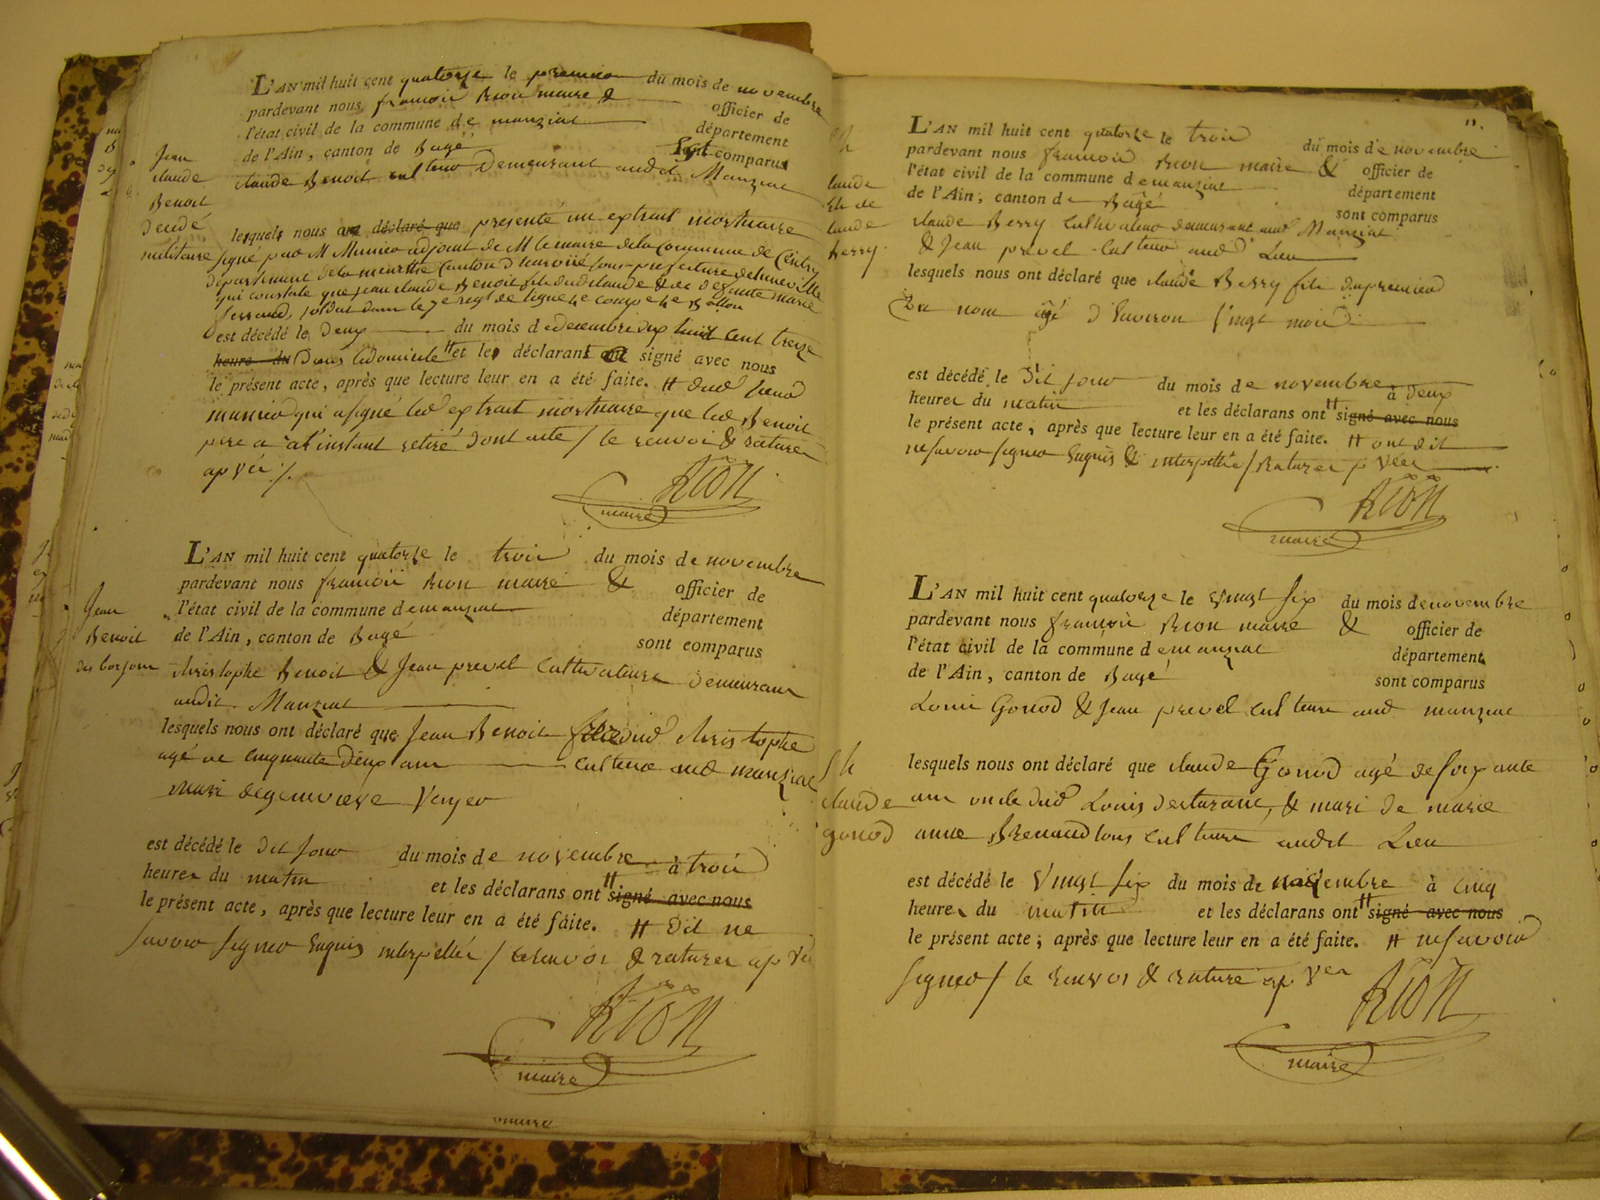 L'AN mil huit cent quatorze le premier du mois de novembre
pardevant nous françois Rion maire & officier de
l'état civil de la commune de manziat département
de l'Ain, canton de Bagé sont comparus
Claude Benoit cultivateur demeurant audit Manziat
Jean
claude
Benoit
decedé
militaire
lesquels nous ont déclaré que présenté un extrait mortuaire
signé par M Munier adjoint de M le maire de la Commune de
département de la meurthe Canton d' sous-prefecture de Luneville
qui constate que jean claude Benoit fils dud claude & de defunte marie
soldat dans le 7e regt de ligne 4e compe 4e Bataillon
est décédé le deux du mois de decembre dix huit cent treize
heure du Dans le domicile et les déclarans ont signé avec nous
le présent acte, après que lecture leur en a été faite. # dud
munier qui a signé led extrait mortuaire que led Benoit
pere a à l'instant retiré dont acte / le renvoi & raturer
ap vée /.
Rion
maire
L'AN mil huit cent quatorze le trois du mois de novembre
pardevant nous françois Rion maire & officier de
l'état civil de la commune de manziat département
de l'Ain, canton de Bagé sont comparus
Jean
Benoit
Christophe Benoit & Jean prevel Cultivateurs demeurans
audit Manziat
lesquels nous ont déclaré que Jean Benoit dud Christophe
agé de cinquante deux ans cultivateur aud manziat
mari de genevieve Voyer
est décédé le dit jour du mois de novembre à trois
heures du matin et les déclarans ont # signé avec nous
le présent acte, après que lecture leur en a été faite. # dit ne
savoir signer Enquis interpellés / le renvoi & raturer ap vée
Rion
maire
11.
L'AN mil huit cent quatorze le trois du mois de novembre
pardevant nous françois Rion maire & officier de
l'état civil de la commune de manziat département
de l'Ain, canton de Bagé sont comparus
Claude
claude
Berry
claude Berry Cultivateur demeurant aud Manziat
& Jean prevel cultivateur aud Lieu
lesquels nous ont déclaré que claude Berry fils du premier
En nom agé d'Environ Vingt mois
est décédé le dit jour du mois de novembre à deux
heures du matin et les déclarans ont # signé avec nous
le présent acte, après que lecture leur en a été faite. # ont dit
ne savoir signer Enquis & interpellés / raturer ap vée
Rion
maire
L'AN mil huit cent quatorze le vingt six du mois de novembre
pardevant nous françois Rion maire & officier de
l'état civil de la commune de manziat département
de l'Ain, canton de Bagé sont comparus
Louis Gonod & Jean prevel cultivateurs aud manziat
claude
gonod
lesquels nous ont déclaré que claude Gonod agé de soixante
ans oncle dud Louis declarant, & mari de marie
anne Brenaud tous cultivateurs audit Lieu
est décédé le Vingt six du mois de novembre à cinq
heures du matin et les déclarans ont # signé avec nous
le présent acte, après que lecture leur en a été faite. # ne savoir
signer / le renvoi & rature ap vée
Rion
maire